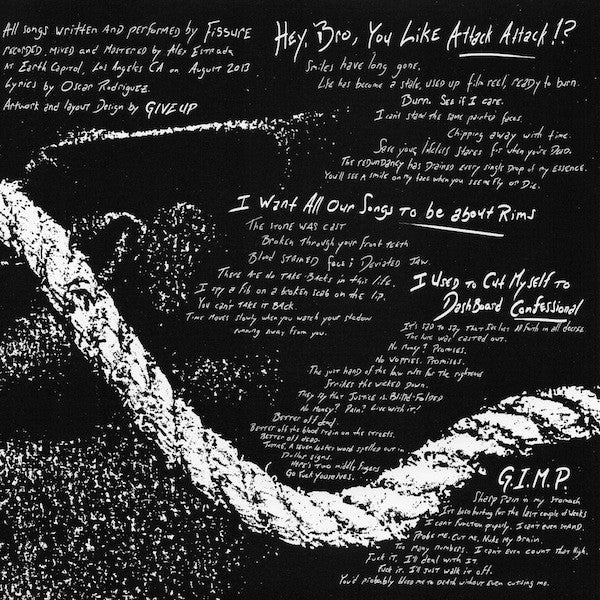 All songs written and performed by Fissure
recorded, mixed and mastered by Alex Estrada
at Earth Capitol, Los Angeles CA on August 2013
Lyrics by Oscar Rodriguez
Artwork and layout Design by GIVE UP
Hey, Bro, You Like Attack Attack!?
Smiles have long gone.
Life has become a stale, used up film reel, ready to burn.
Burn. See if I care.
I can't stand the same painted faces.
Chipping away with time.
Save your lifeless stares for when you're Dead.
The redundancy has Drained every single drop of my essence.
You'll see a smile on my face when you see me Fly or Die.
I Want All Our Songs To be about Rims
The stone was cast
Broken through your front teeth
Blood stained face; Deviated Jaw.
There are no Take Backs in this life.
I spy a fib on a broken scab on the lip.
You can't take it back
Time moves slowly when you watch your shadow
running away from you.
I Used to Cut Myself to
DashBoard Confessional
It's sad to say, that faith in all
The have
No Money? Promises.
No worries. Promises.
The just hand of the law rules for the righteous
Strikes the wicked down.
They say that Justice is Blind-Folded
No Money? Pain? Live with it!
Better off dead.
Better off the blood stain on the streets.
Better off dead.
a seven letter word spelled out in
Dollar signs.
Here's Two middle fingers
Go Fuck Yourselves.
G.I.M.P.
Sharp Pain in my stomach
It's been hurting for the last couple of weeks
I can't function properly. I can't even stand.
Probe me, Cut me, Nuke My Brain.
Too many numbers. I can't even count that high.
Fuck it. I'll deal with it
Fuck it. I'll just walk it off.
You'd probably bleed me to death without even cutting me.